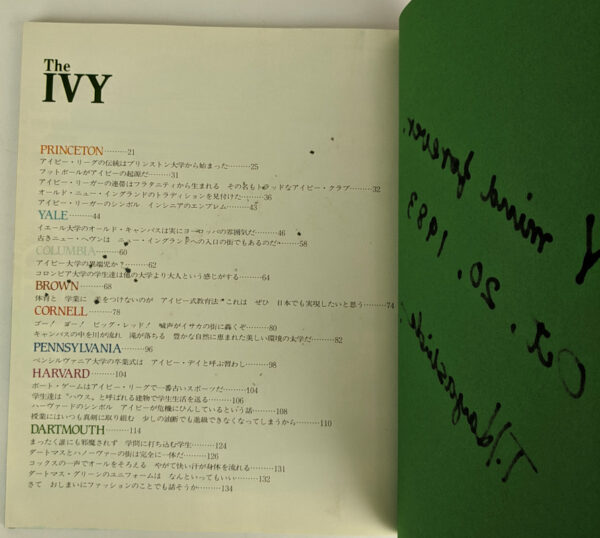 The
IVY
PRINCETON………21
アイビー・リーグの伝統はプリンストン大学から始まった………25
フットボールがアイビーの起源だ………31
アイビー・リーガーの連帯はフラタニティから生まれる それもトラッドなアイビー・クラブ………32
オールド・ニュー・イングランドのトラディションを見付けた………36
アイビー・リーガーのシンボル インシニアのエンブレム………43
YALE………44
イエール大学のオールド・キャンパスは実にヨーロッパの雰囲気だ………46
古きニュー・ヘヴンは ニュー・イングランドへの入口の街でもあるのだ………58
COLUMBIA………60
アイビー大学の異端児か?………62
コロンビア大学の学生達は他の大学より大人という感じがする………64
BROWN………68
体育と 学業に をつけないのが アイビー式教育法 これは ぜひ 日本でも実現したいと思う………74
CORNELL………78
ゴー! ゴー! ビッグ・レッド! 喊声がイサカの街に轟くぞ………80
キャンパスの中を川が流れ 滝が落ちる 豊かな自然に恵まれた美しい環境の大学だ………82
PENNSYLVANIA………96
ペンシルヴァニア大学の卒業式は アイビー・デイと呼ぶ習わし………98
HARVARD………104
ボート・ゲームはアイビー・リーグで一番古いスポーツだ………104
学生達は“ハウス”と呼ばれる建物で学生生活を送る………106
ハーヴァードのシンボル アイビーが危機にひんしているという話………108
授業にはいつも真剣に取り組む 少しの油断でも進級できなくなってしまうから………110
DARTMOUTH………114
まったく誰にも邪魔されず 学問に打ち込む学生………124
ダートマスとハノーヴァーの街は完全に一体だ………126
コックスの一声でオールをそろえる やがて快い汗が身体を流れる………131
ダートマス・グリーンのユニフォームは なんといってもいい………132
さて おしまいにファッションのことでも話そうか………134
mind forever.
Oct. 20. 1983